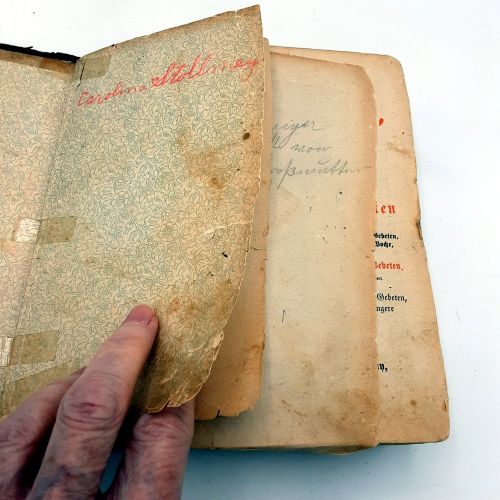 Carolina Stollmey
von
oßmutter
ien
Gebeten,
Woche,
Gebeten,
en
Gebeten,
ngere